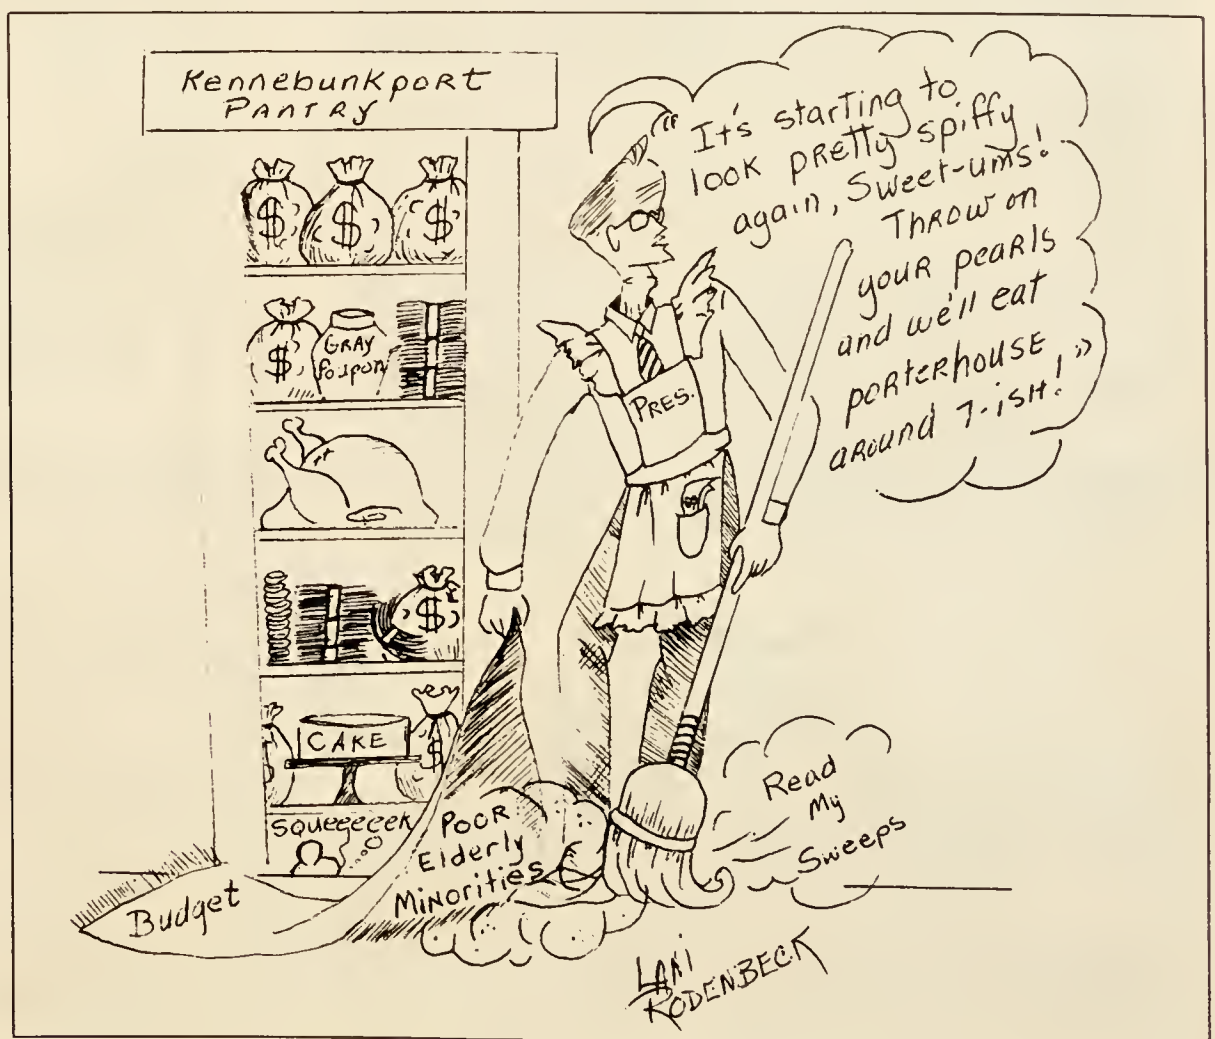 Kennebunkport
Pantry
It's starting to
look pretty spiffy
again, Sweet-ums!
Throw on
your pearls
and we'll eat
porterhouse
around 7-ish!"
$ $ $
$
Gray
Poupon
PRES.
$
$
CAKE
$
$
Squeeeeek
Poor
Elderly
Minorities
Budget
Read
My
Sweeps
LANI
RODENBECK